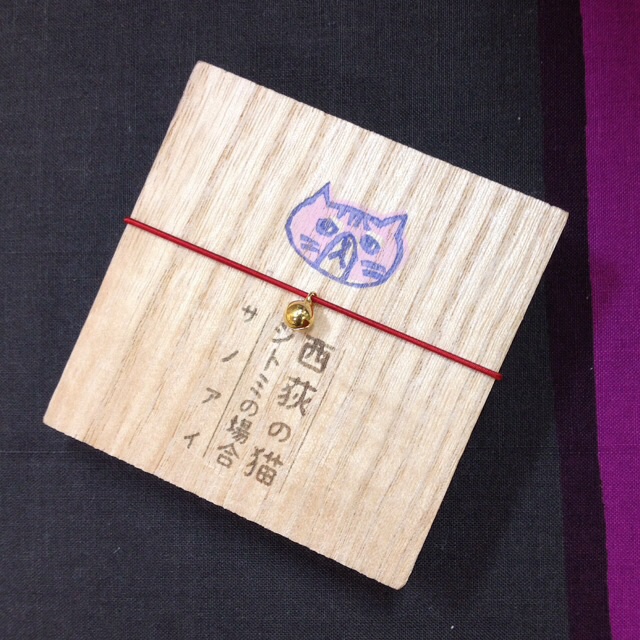 西荻の猫
シトミの場合
サノアイ